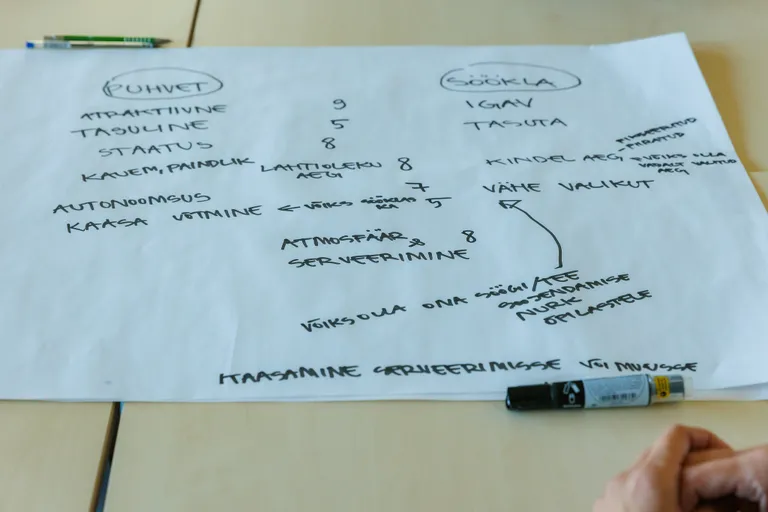 PUHVET
SÖÖKLA
ATRAKTIIVNE 9 IGAV
TASULINE 5 TASUTA
STAATUS 8
KAUEM, PAINDLIK LAHTIOLEKU AEG! 8
KINDEL AEG
VÕIKS OLLA
VABALT VALITUD
AEG
AUTONOOMSUS 7 VÄHE VALIKUT
KAASA VÕTMINE ← VÕIKS SÖÖKLAS KA 5
ATMOSFÄÄR 8
SERVEERIMINE 8
VÕIKS OLLA OMA SÖÖGI/TEE
SOOJENDAMISE
NURK
ÕPILASTELE
KAASAMINE SERVEERIMISSE VÕI MUUSSE